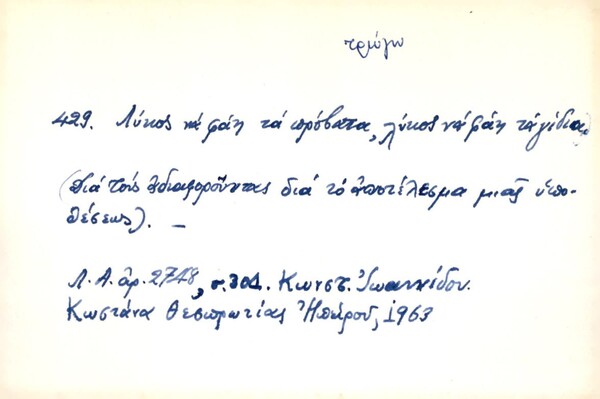 τρώγω
429. Λύκος νά φάη τά πρόβατα, λύκος νά φάη τά γίδια.
(Διά τούς ἀδιαφοροῦντας διά τό ἀποτέλεσμα μιᾶς ὑπο-
θέσεως). –
Λ. Α. ἀρ. 2748, σ. Κωνστ. Ἰωαννίδου.
Κωστάνα Θεσπρωτίας Ἠπείρου, 1963